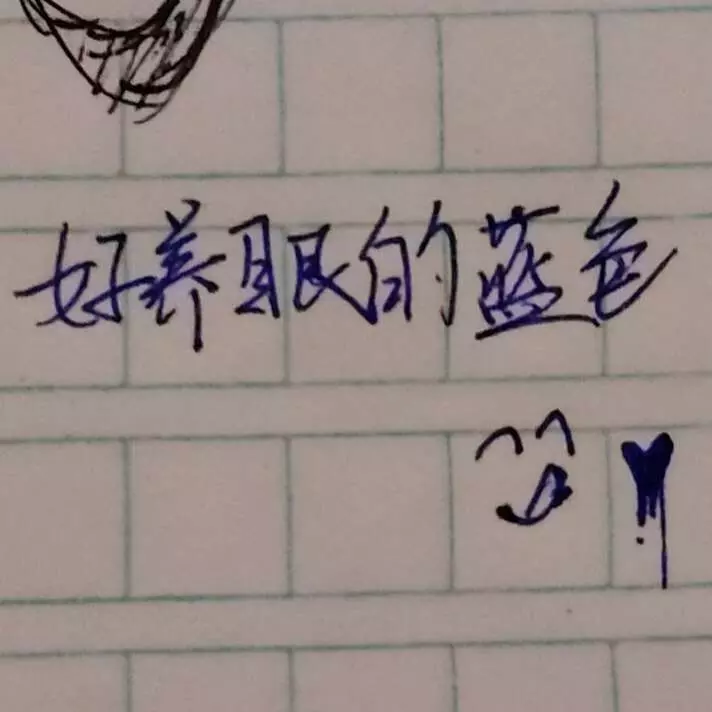 好养眼的蓝色